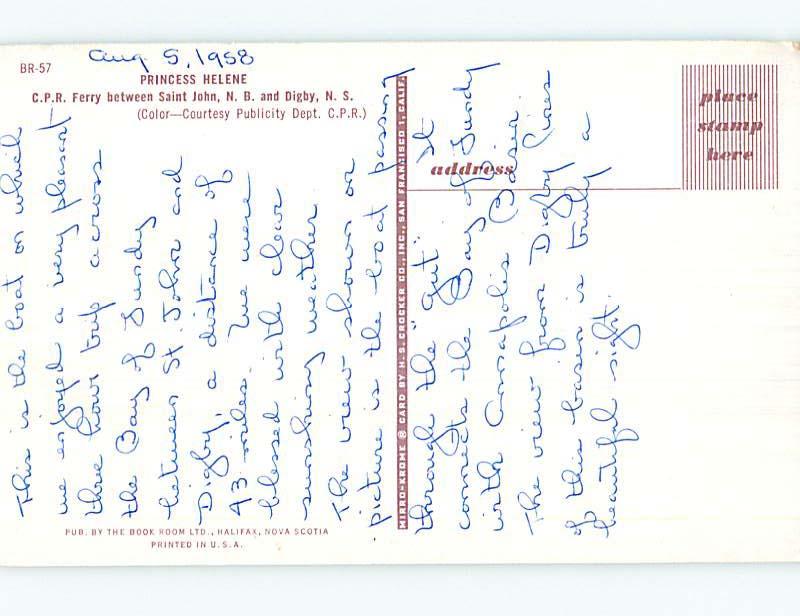 Aug 5, 1958
BR-57
PRINCESS HELENE
C.P.R. Ferry between Saint John, N. B. and Digby, N. S.
(Color—Courtesy Publicity Dept. C.P.R.)
This is the boat on which
we enjoyed a very pleasant
three hour trip across
the Bay of Fundy
between St. John and
Digby, a distance of
43 miles. We were
blessed with clear
sunshiny weather.
The view shown on
picture is the boat passing
through the "Gut". It
connects the Bay of Fundy
with Annapolis Basin.
The view from Digby Pines
of this basin is truly a
beautiful sight.
MIRRO-KROME ® CARD BY H. S. CROCKER CO., INC., SAN FRANCISCO 1, CALIF.
address
place
stamp
here
PUB. BY THE BOOK ROOM LTD., HALIFAX, NOVA SCOTIA
PRINTED IN U.S.A.